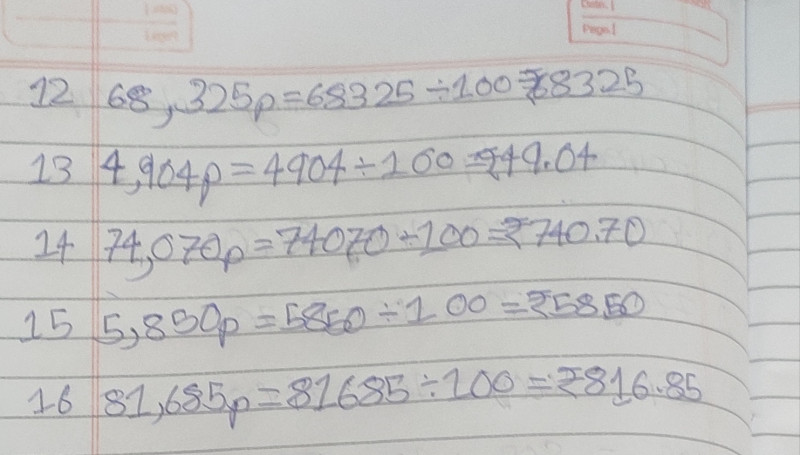 Date.
Page.
12 68,325p = 68325 ÷ 100 = ₹68325
13 4,904p = 4904 ÷ 100 = ₹49.04
14 74,070p = 74070 ÷ 100 = ₹740.70
15 5,850p = 5850 ÷ 100 = ₹58.50
16 81,685p = 81685 ÷ 100 = ₹816.85